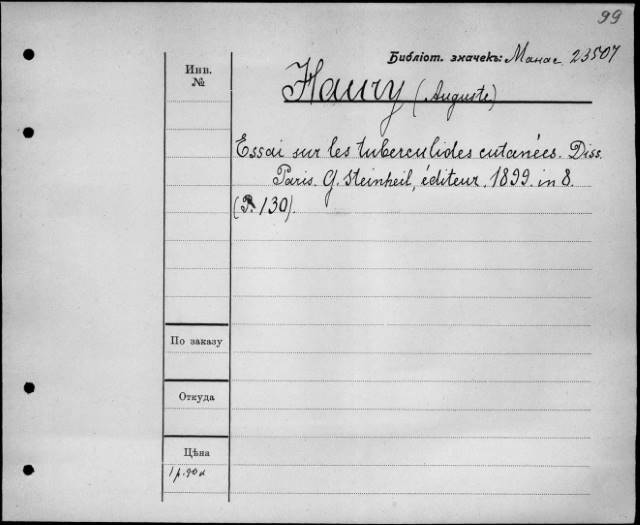 99
Библіот. значекъ: Манас. 23507
Инв.
№
Haury (Auguste)
Essai sur les tuberculides cutanées. Diss.
Paris. G. Steinheil, éditeur. 1899. in 8.
(P. 130).
По заказу
Откуда
Цѣна
1 р. 90 к